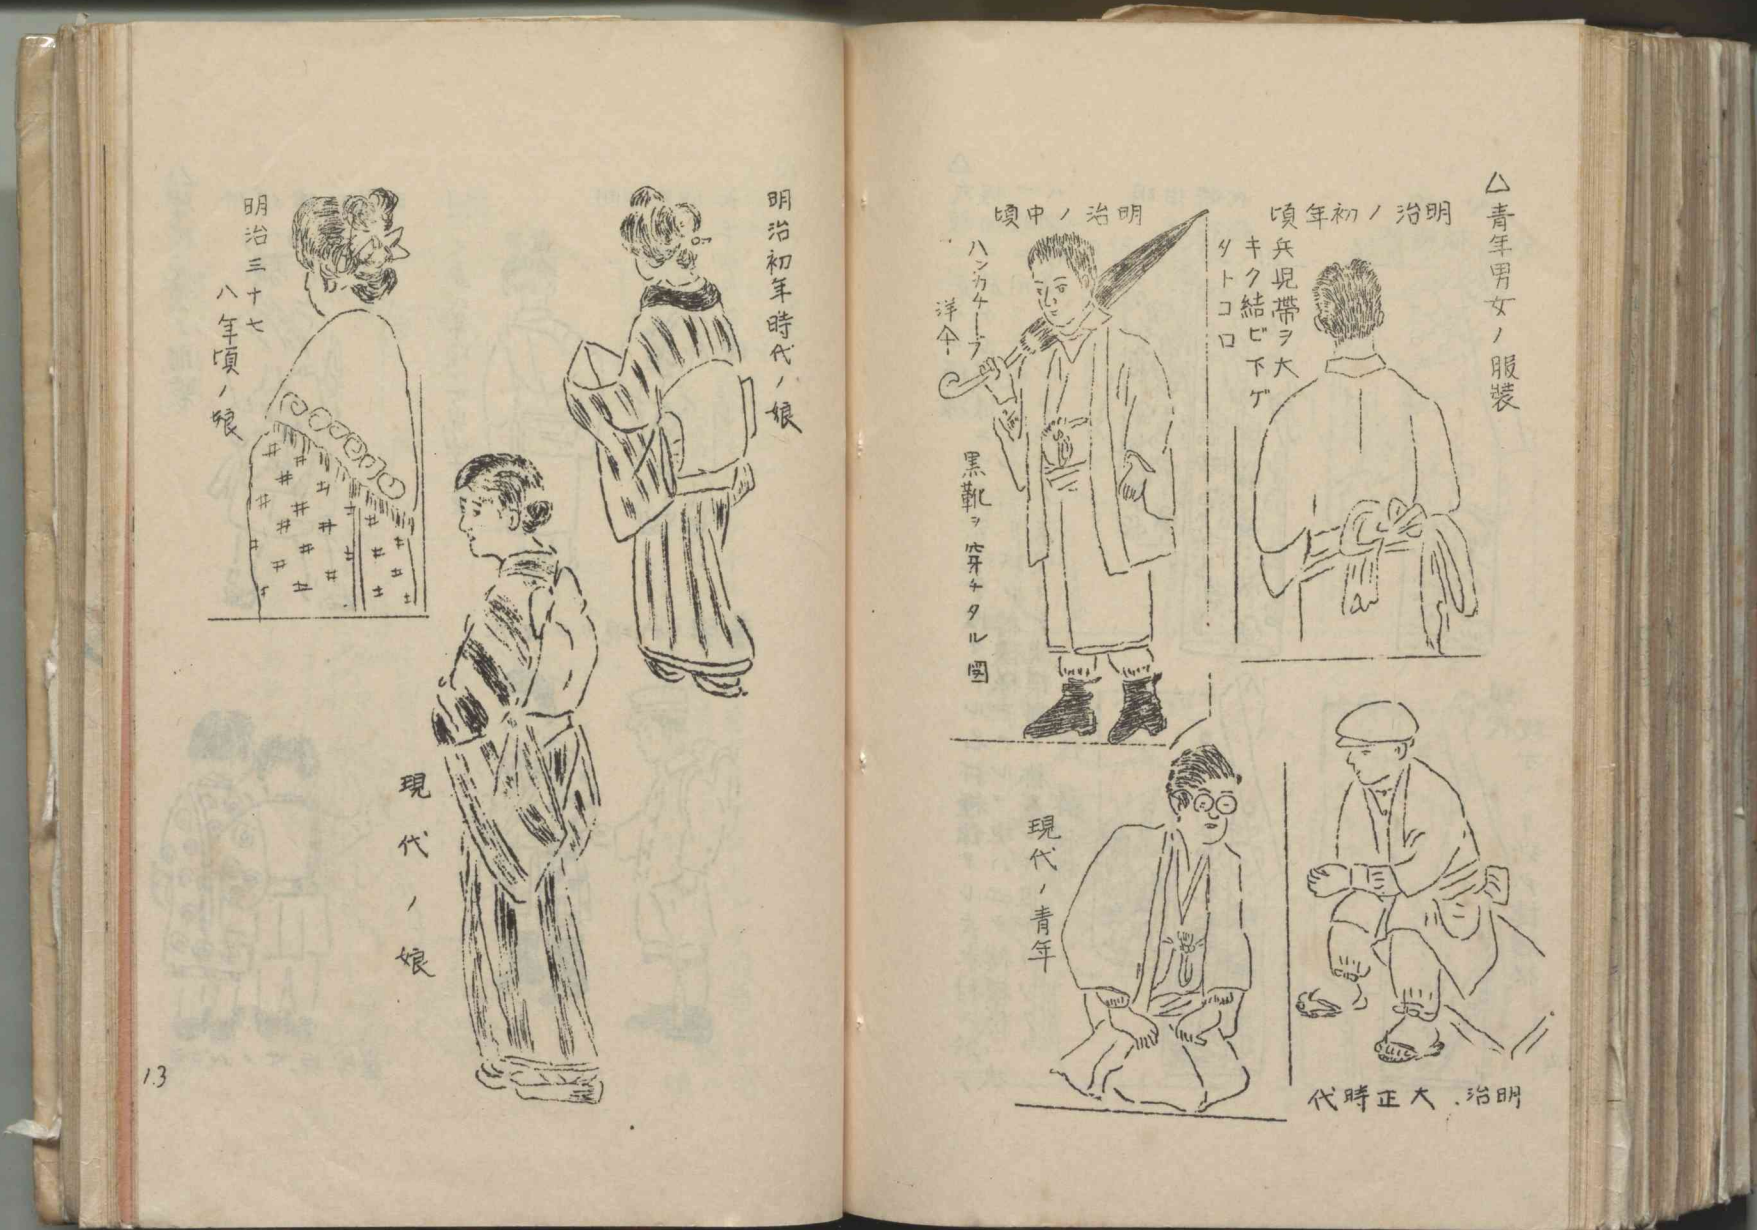 △青年男女ノ服装
明治ノ初年頃
兵児帯ヲ大
キク結ビ下ゲ
タトコロ
明治ノ中頃
ハンカチーフ
洋傘
黒靴ヲ穿チタル図
明治、大正時代
現代ノ青年
明治初年時代ノ娘
現代ノ娘
明治三十七
八年頃ノ娘
13